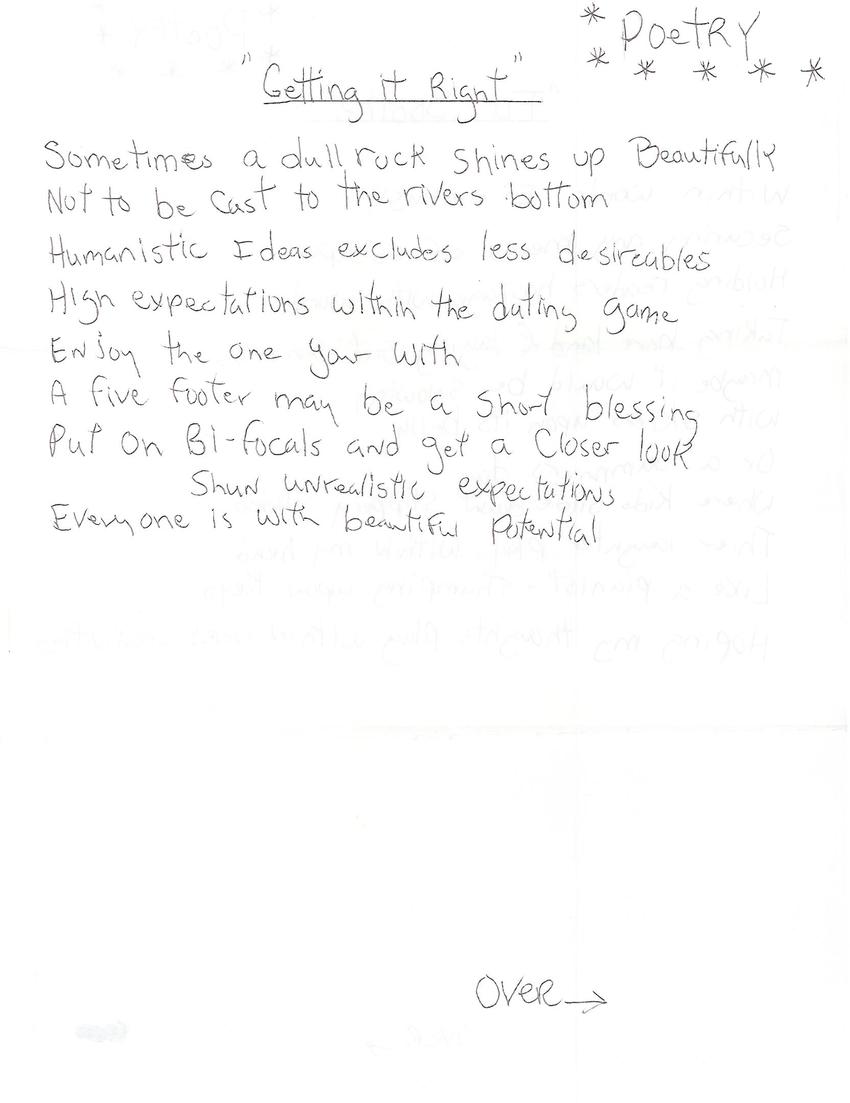 * Poetry
* * * * *
"Getting it Right"
Sometimes a dull rock shines up Beautifully
Not to be cast to the rivers bottom
Humanistic Ideas excludes less desireables
High expectations within the dating game
Enjoy the one your with
A five footer may be a short blessing
Put on Bi-focals and get a closer look
Shun unrealistic expectations
Everyone is with beautiful potential
OVER →